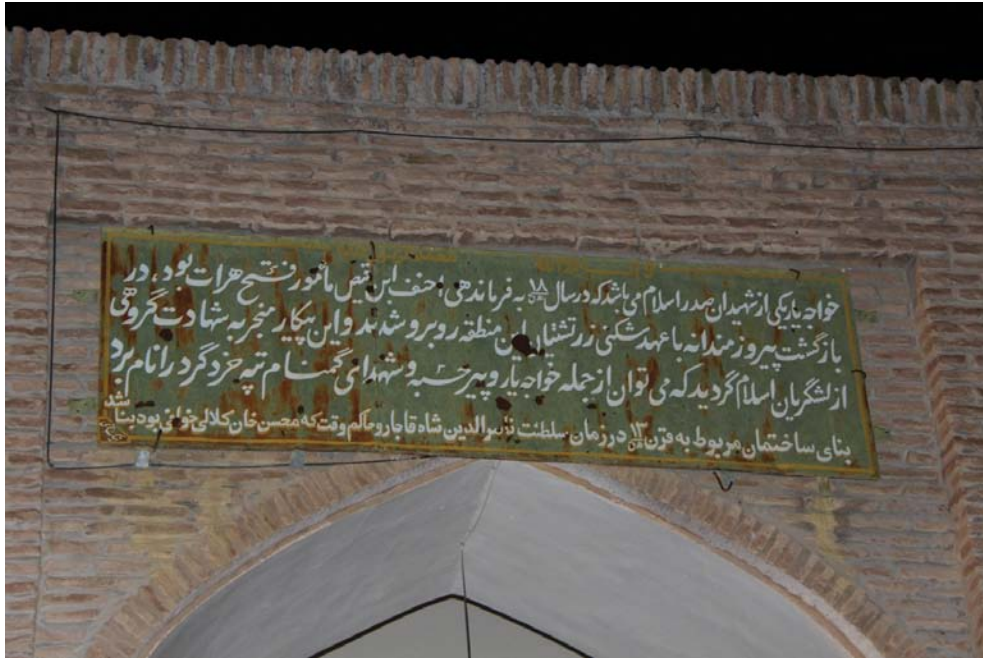 خواجه یار یکی از شهیدان صدر اسلام می باشد که در سال ۱۸ ه‍ ق به فرماندهی احنف ابن قیس مأمور فتح هرات بود، در
بازگشت پیروزمندانه با عهد شکنی زرتشتیان این منطقه روبرو شدند و این پیکار منجر به شهادت گروهی
از لشگریان اسلام گردید که می توان از جمله خواجه یار و پیر حسبه و شهدای گمنام تپه خرد گرد را نام برد
بنای ساختمان مربوط به قرن ۱۳ ه‍ ق در زمان سلطنت ناصرالدین شاه قاجار و حاکم وقت که محسن خان کلالی خوافی بود بنا شد